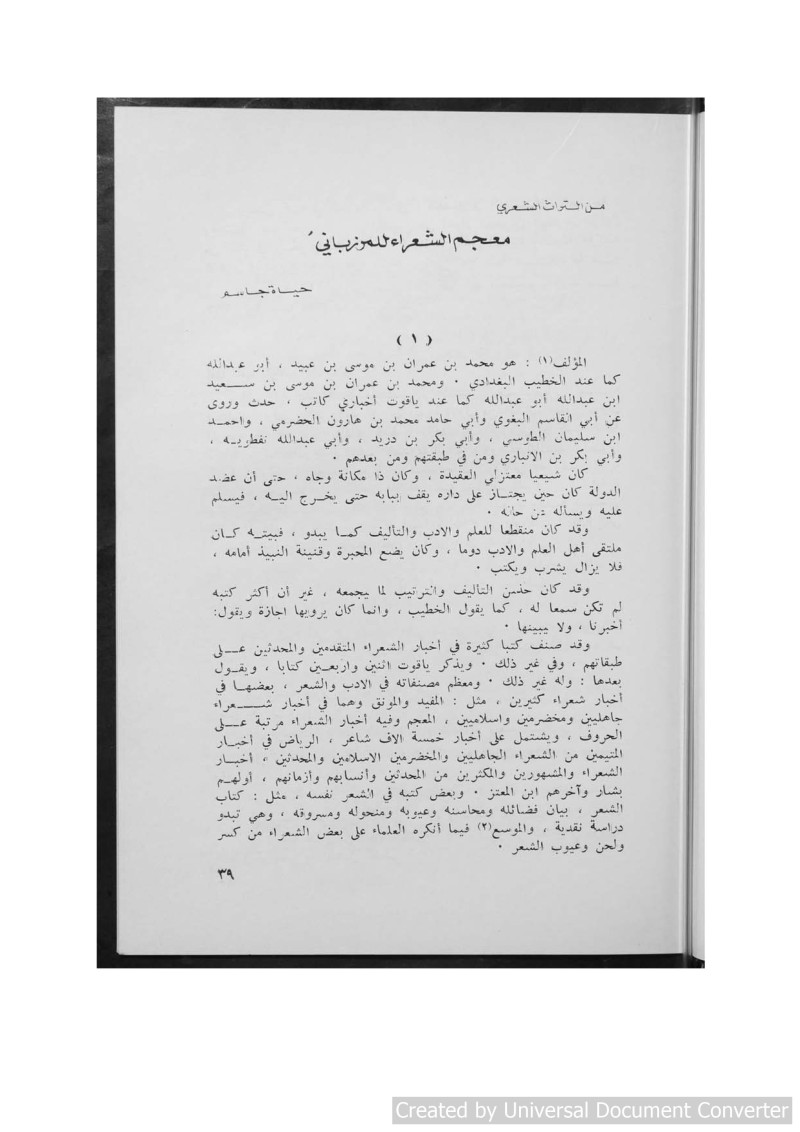 من التراث الشعري
معجم الشعراء للمرزباني
حياة جاسم
( ١ )
المؤلف(١) : هو محمد بن عمران بن موسى بن عبيد ، أبو عبدالله
كما عند الخطيب البغدادي · ومحمد بن عمران بن موسى بن سـعيد
ابن عبدالله أبو عبدالله كما عند ياقوت أخباري كاتب ، حدث وروى
عن أبي القاسم البغوي وأبي حامد محمد بن هارون الحضرمي ، واحمـد
ابن سليمان الطوسي ، وأبي بكر بن دريد ، وأبي عبدالله نفطويـه ،
وأبي بكر بن الانباري ومن في طبقتهم ومن بعدهم ·
كان شيعيا معتزلي العقيدة ، وكان ذا مكانة وجاه ، حتى أن عضد
الدولة كان حين يجتـاز على داره يقف ببابه حتى يخـرج اليـه ، فيسلم
عليه ويسأله عن حاله ·
وقد كان منقطعا للعلم والادب والتأليف كمـا يبدو ، فبيتـه كـان
ملتقى أهل العلم والادب دوما ، وكان يضع المحبرة وقنينة النبيذ أمامه ،
فلا يزال يشرب ويكتب ·
وقد كان حسن التأليف والترتيب لما يجمعه ، غير أن أكثر كتبه
لم تكن سمعا له ، كما يقول الخطيب ، وانما كان يرويها اجازة ويقول:
أخبرنا ، ولا يبينها ·
وقد صنف كتبا كثيرة في أخبار الشعراء المتقدمين والمحدثين عـلى
طبقاتهم ، وفي غير ذلك · ويذكر ياقوت اثنين واربعـين كتابا ، ويقـول
بعدها : وله غير ذلك · ومعظم مصنفاته في الادب والشعر ، بعضهـا في
أخبار شعراء كثيرين ، مثل : المفيد والمونق وهما في أخبار شـعراء
جاهليين ومخضرمين واسلاميين ، المعجم وفيه أخبار الشعراء مرتبة عـلى
الحروف ، ويشتمل على أخبار خمسة الاف شاعر ، الرياض في أخبـار
المتيمين من الشعراء الجاهليين والمخضرمين الاسلامين والمحدثين ، أخبـار
الشعراء والمشهورين والمكثرين من المحدثين وأنسابهم وأزمانهم ، أولهـم
بشار وآخرهم ابن المعتز · وبعض كتبه في الشعر نفسه ، مثل : كتاب
الشعر ، بيان فضائله ومحاسنه وعيوبه ومنحوله ومسروقه ، وهي تبدو
دراسة نقدية ، والموسع(٢) فيما أنكره العلماء على بعض الشعراء من كسر
ولحن وعيوب الشعر ·
٣٩
Created by Universal Document Converter